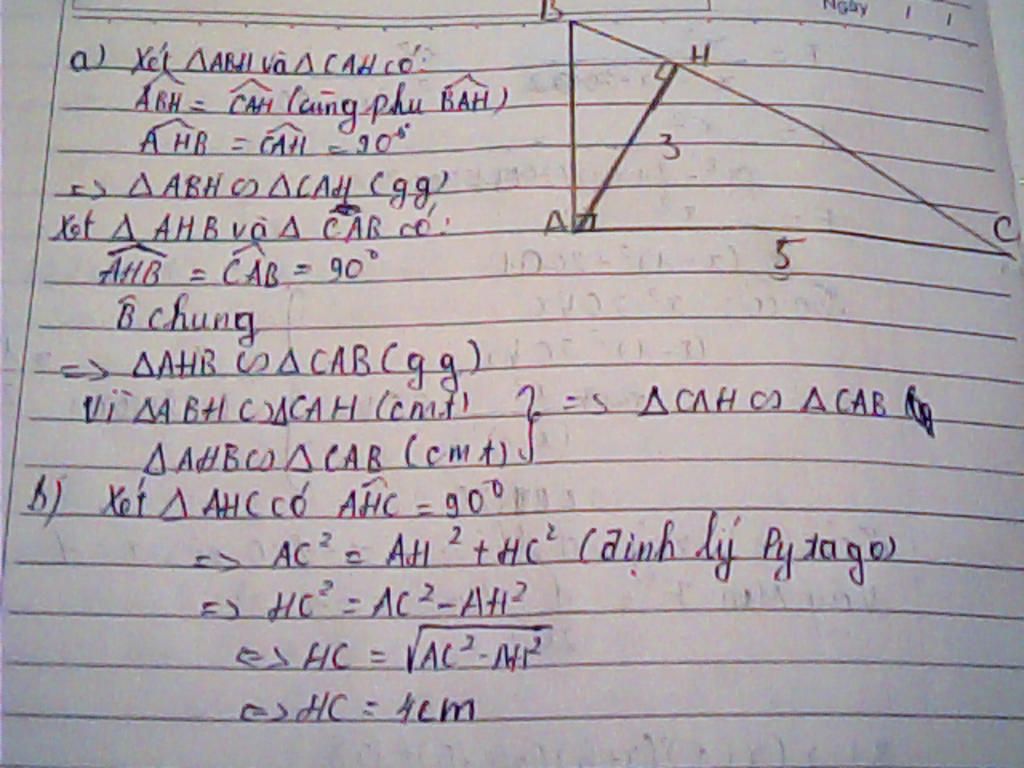 Ngày
a) Xét ΔABH và ΔCAH có:
ABH = CAH (cùng phụ BAH)
AHB = CAH = 90°
=> ΔABH ∽ ΔCAH (gg)
Xét Δ AHB và Δ CAB có:
AHB = CAB = 90°
B chung
=> ΔAHB ∽ ΔCAB (gg)
Vì ΔABH ∽ ΔCAH (cmt) } => ΔCAH ∽ ΔCAB
ΔAHB ∽ ΔCAB (cmt)
b) Xét Δ AHC có AHC = 90°
=> AC² = AH² + HC² (định lý Pytago)
=> HC² = AC² - AH²
<=> HC = √AC² - AH²
<=> HC = 4cm
B
H
3
A
5
C